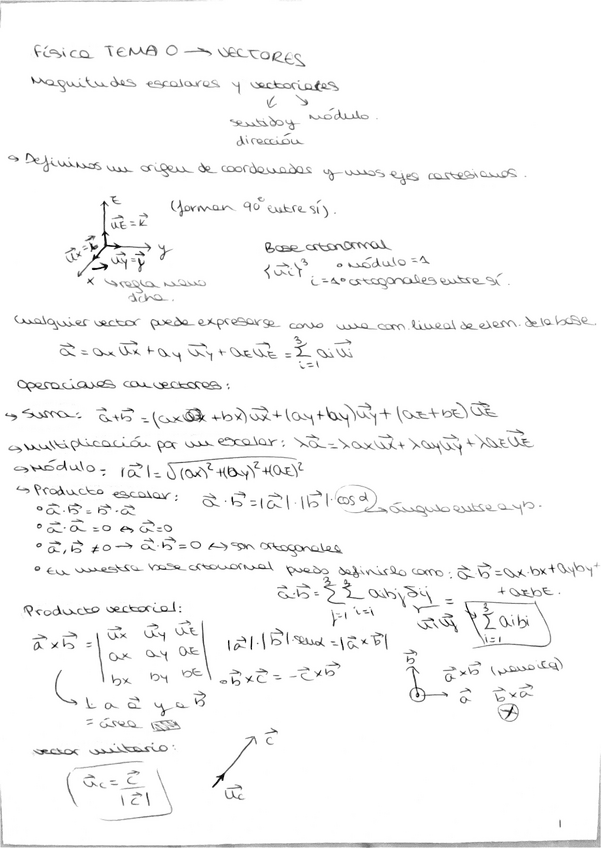 Física TEMA 0 → VECTORES
Magnitudes escalares y vectoriales
sentido y módulo.
dirección
→ Definimos un origen de coordenadas y unos ejes cartesianos.
z (forman 90° entre sí).
u⃗z = k⃗
u⃗x = u⃗y = j⃗ y
x → regla mano
dcha.
Base ortonormal
{u⃗i}³ ° módulo = 1
i=1 ° ortogonales entre sí.
Cualquier vector puede expresarse como una com. lineal de elem. de la base.
a⃗ = ax u⃗x + ay u⃗y + az u⃗z = Σ³ᵢ₌₁ ai u⃗i
Operaciones con vectores:
↳ Suma: a⃗+b⃗ = (ax + bx) u⃗x + (ay + by) u⃗y + (az + bz) u⃗z
↳ Multiplicación por un escalar: λa⃗ = λax u⃗x + λay u⃗y + λaz u⃗z
↳ Módulo: |a⃗| = √(ax)² + (ay)² + (az)²
↳ Producto escalar: a⃗ · b⃗ = |a⃗| · |b⃗| · cos α → ángulo entre a y b.
° a⃗ · b⃗ = b⃗ · a⃗
° a⃗ · a⃗ = 0 ⇔ a⃗ = 0
° a⃗, b⃗ ≠ 0 → a⃗ · b⃗ = 0 ↔ son ortogonales
° En nuestra base ortonormal puedo definirlo como: a⃗ b⃗ = ax · bx + ay by +
+ az bz.
a⃗ · b⃗ = Σ³ⱼ₌₁ Σ³ᵢ₌₁ ai bj δij = Σ³ᵢ₌₁ ai bi
u⃗i u⃗j
Producto vectorial:
a⃗ × b⃗ = | u⃗x u⃗y u⃗z |
| ax ay az |
| bx by bz |
|a⃗| · |b⃗| · sen α = |a⃗ × b⃗|
° b⃗ × c⃗ = -c⃗ × b⃗
↳ ⊥ a a⃗ y a b⃗
= área
b⃗ a⃗ × b⃗
a⃗ b⃗ × a⃗
vector unitario:
u⃗c = c⃗ / |c⃗|
c⃗
u⃗c
1